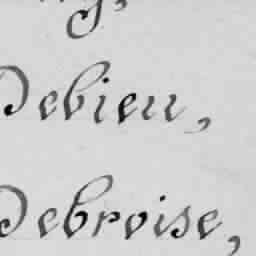 Debieu,
Debroise,